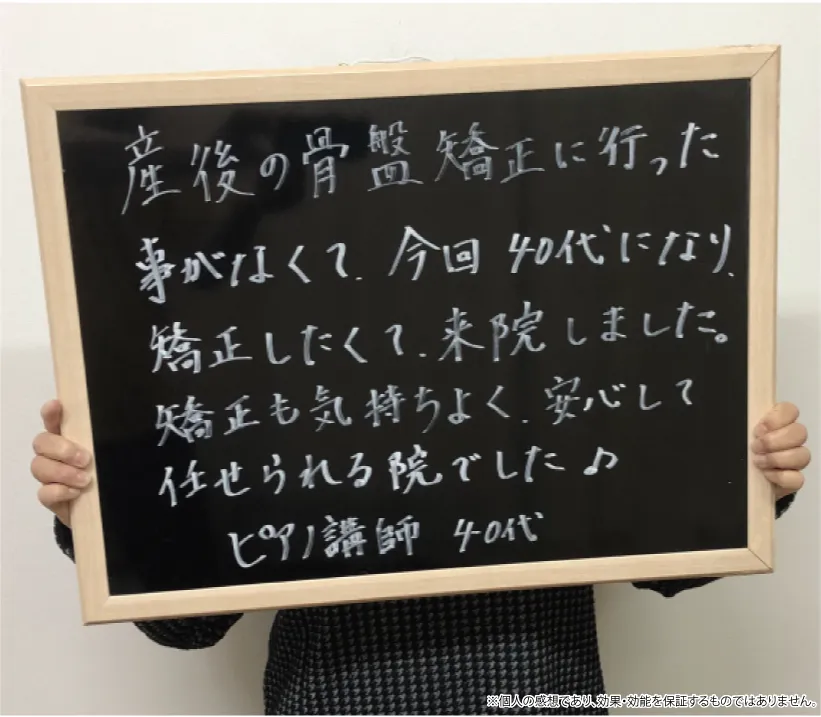 産後の骨盤矯正に行った
事がなくて、今回40代になり、
矯正したくて、来院しました。
矯正も気持ちよく、安心して
任せられる院でした♪
ピアノ講師 40代
※個人の感想であり、効果・効能を保証するものではありません。